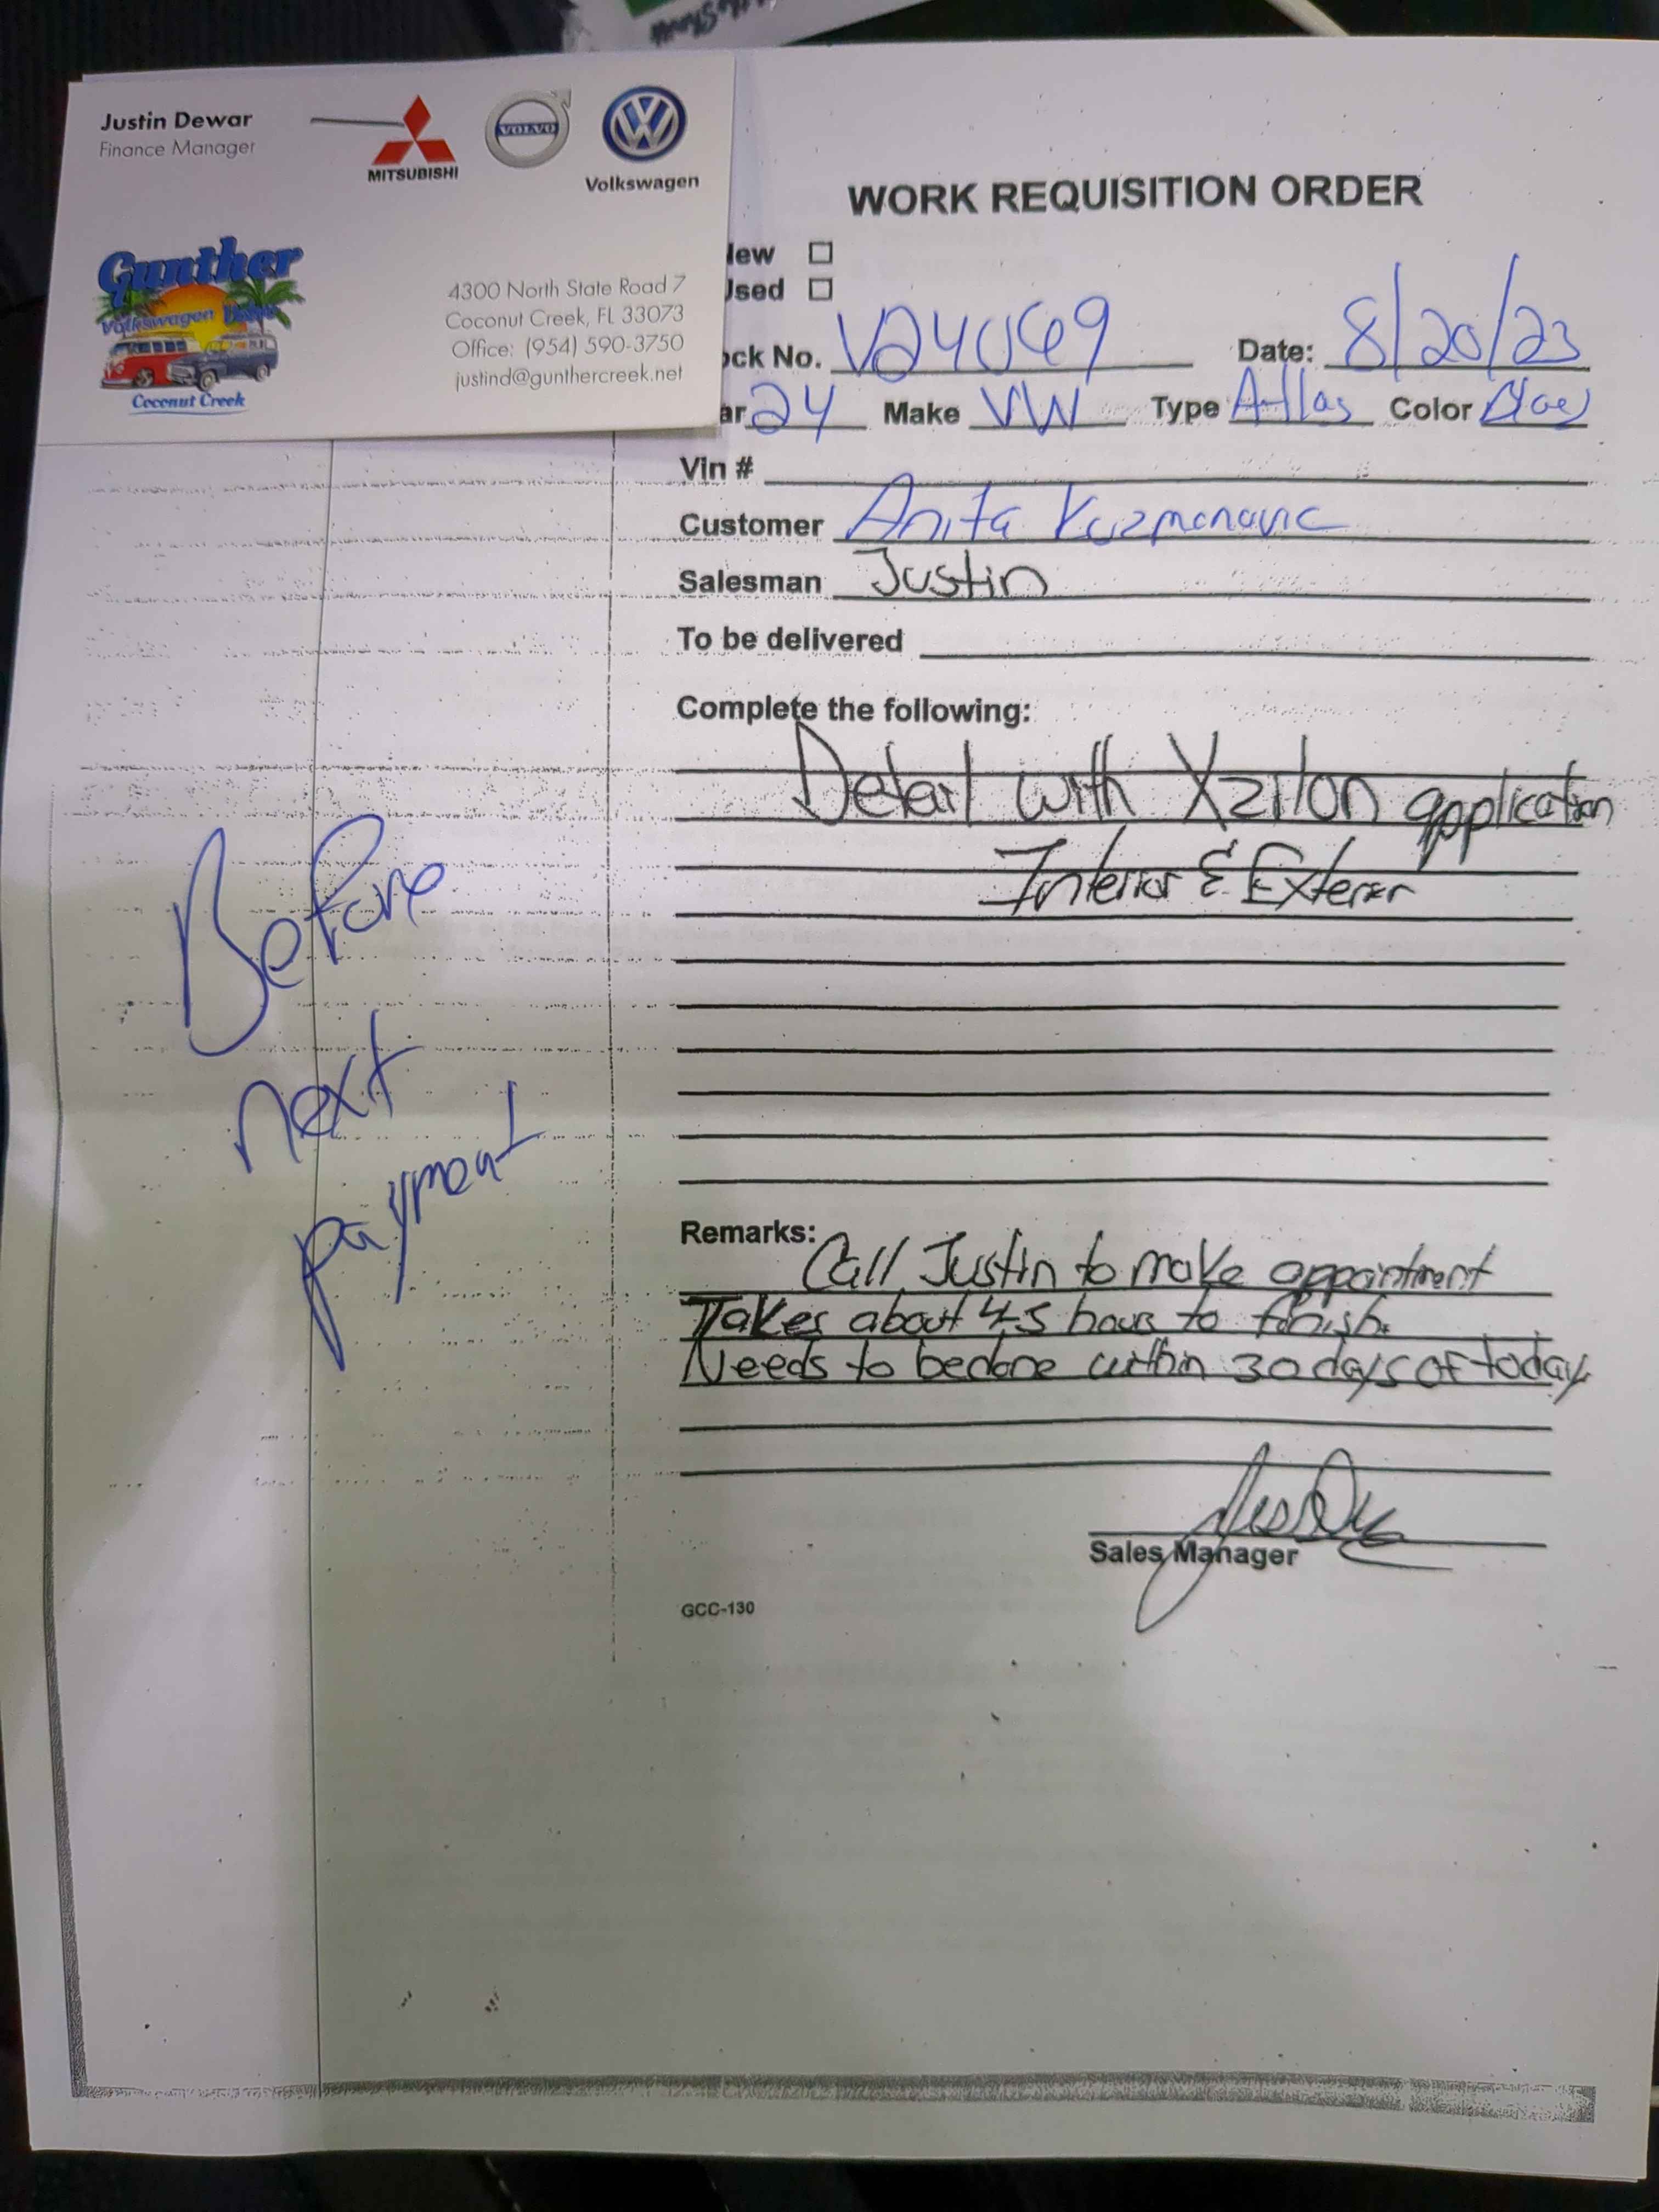 Justin Dewar
Finance Manager
MITSUBISHI
VOLVO
Volkswagen
Gunther
Volkswagen Volvo
Coconut Creek
4300 North State Road 7
Coconut Creek, FL 33073
Office: (954) 590-3750
justind@gunthercreek.net
WORK REQUISITION ORDER
New
Used
ock No. V24069 Date: 8/20/23
ar 24 Make VW Type Atlas Color
Vin #
Customer Anita Kuzmanovic
Salesman Justin
To be delivered
Complete the following:
Detail with Xzilon application
Interior & Exterior
Before
next
payment
Remarks: Call Justin to make appointment
Takes about 4-5 hours to finish.
Needs to be done within 30 days of today
Sales Manager
GCC-130